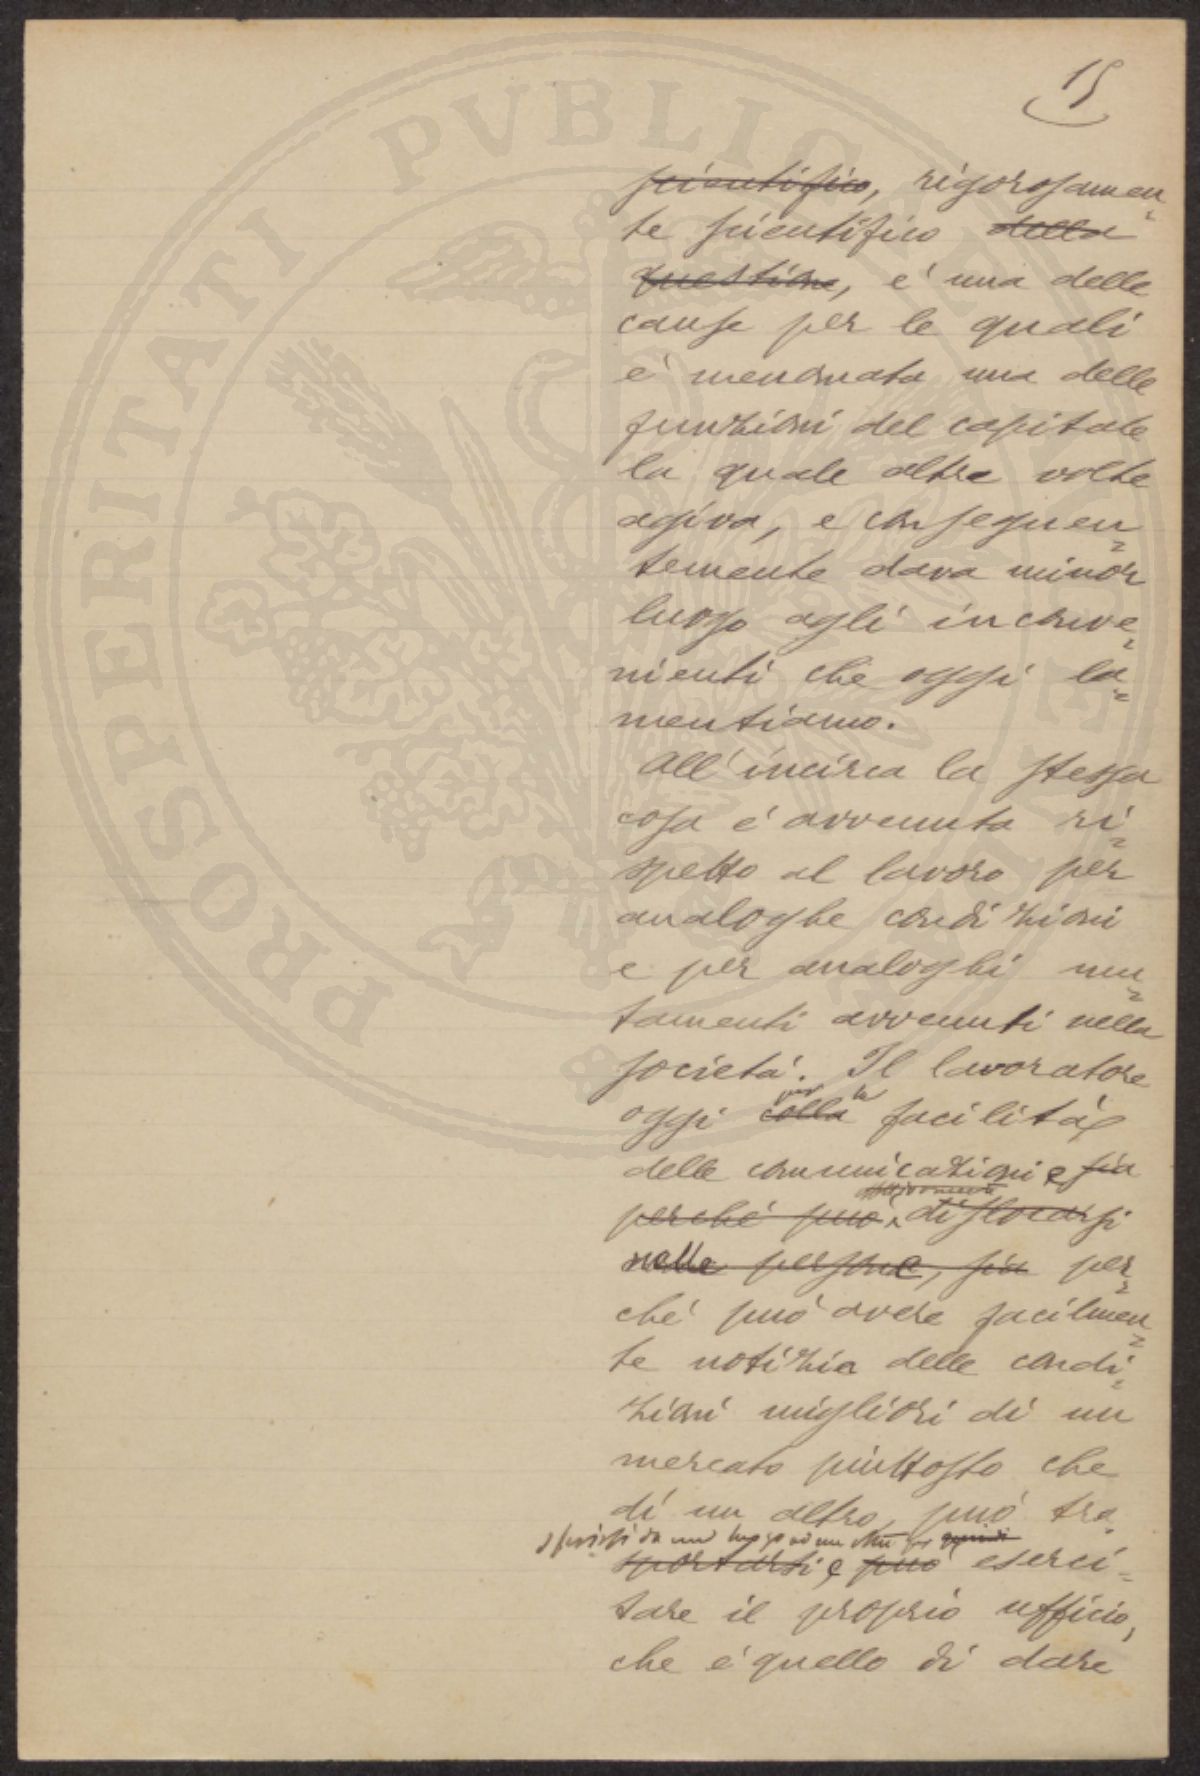 15
scientifico, rigorosamen=
te scientifico della
questione, e' una delle
cause per le quali
e' menomata una delle
funzioni del capitale
la quale altre volte
agiva, e conseguen=
temente dava minor
luogo agli inconve=
nienti che oggi la=
mentiamo.
All'incirca la stessa
cosa e' avvenuta ri=
spetto al lavoro per
analoghe condizioni
e per analoghi mu=
tamenti avvenuti nella
societa'. Il lavoratore
per la
oggi colla facilita'
delle comunicazioni e sia
perche' puo' dislocarsi
nelle persone, sia per=
che' puo' avere facilmen=
te notizia delle condi=
zioni migliori di un
mercato piuttosto che
di un altro, puo' tra=
da un luogo ad un
sportarsi e puo' eserci=
tare il proprio ufficio,
che e' quello di dare
PROSPERITATI PVBLICAE